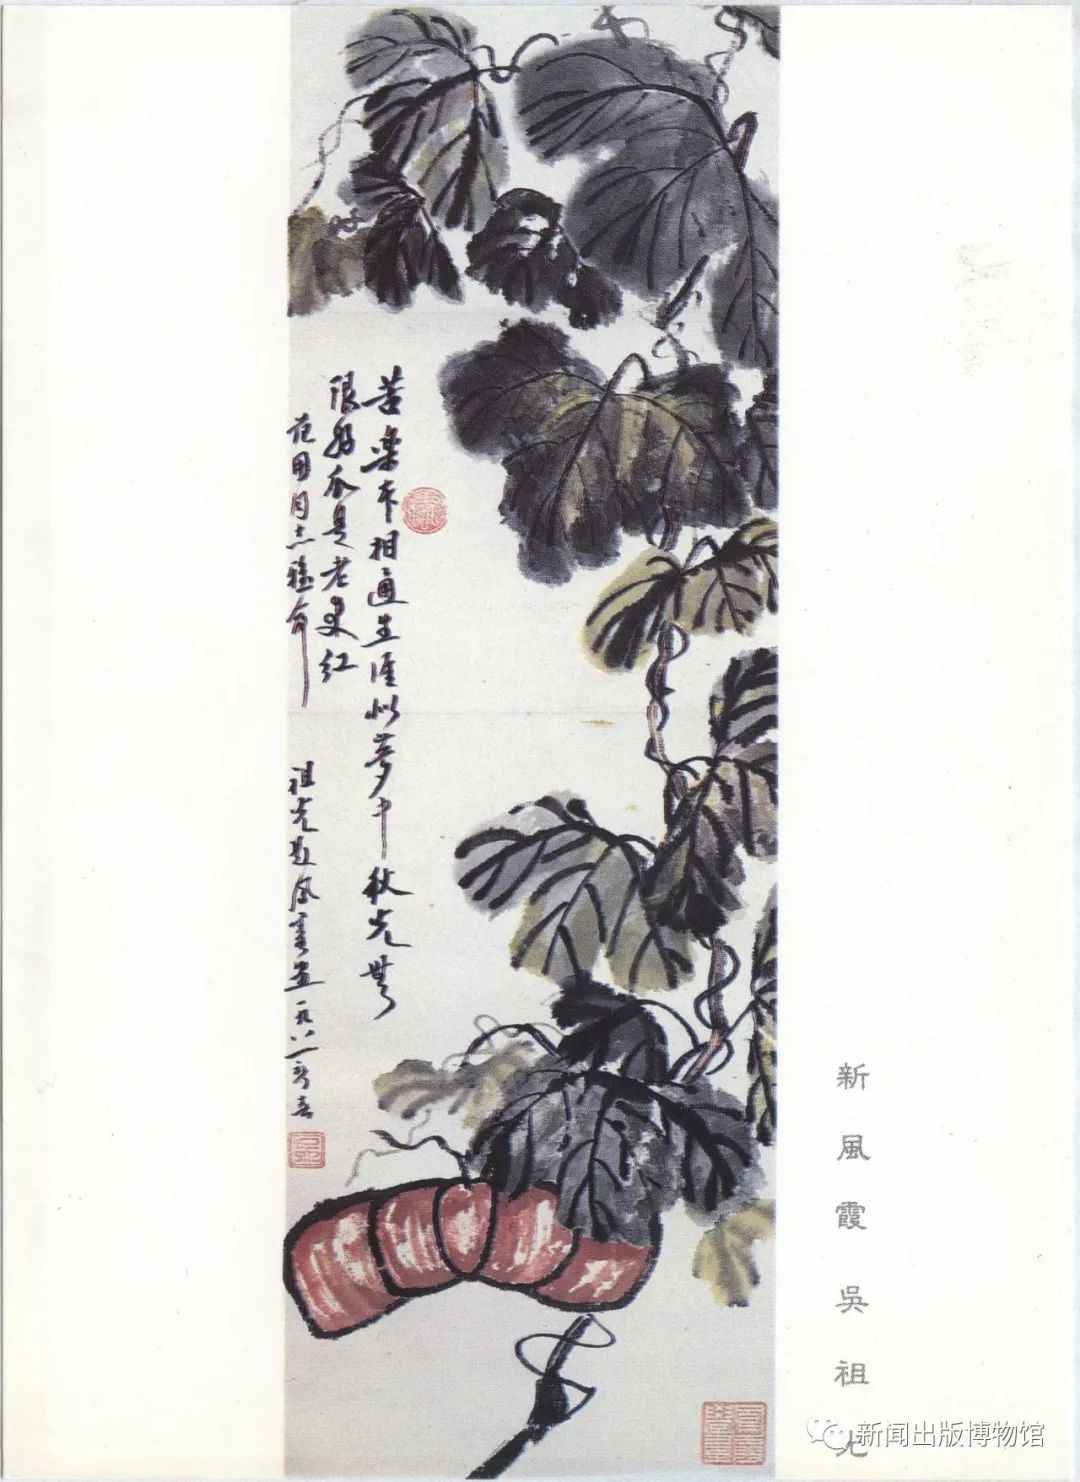 苦樂本相通生涯似夢中秋光無
限好瓜是老来红
范用同志雅命
祖光题凤霞画一九八一年春
新風霞 吳祖光
新闻出版博物馆